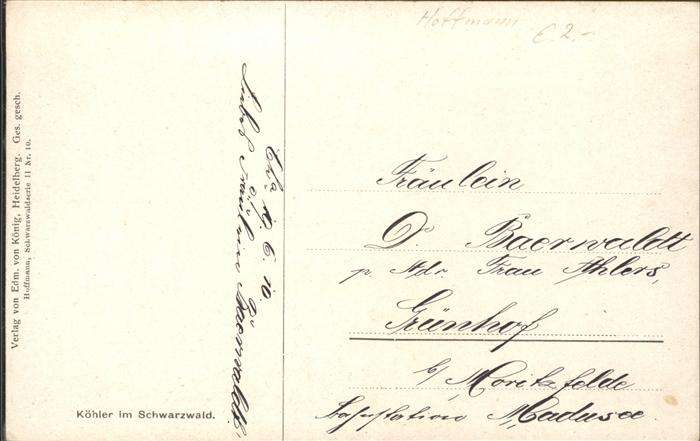 Hoffmann
€ 2.-
Verlag von Edm. von König, Heidelberg. Ges. gesch.
Hoffmann, Schwarzwaldserie II Nr. 10.
6. 10.
Liebes Fräulein Baerwaldt,
Fräulein
D. Baerwaldt
p. Adr. Frau Ahlers,
Grünhof
b/ Moritzfelde
Bahnstation Madusee
Köhler im Schwarzwald.